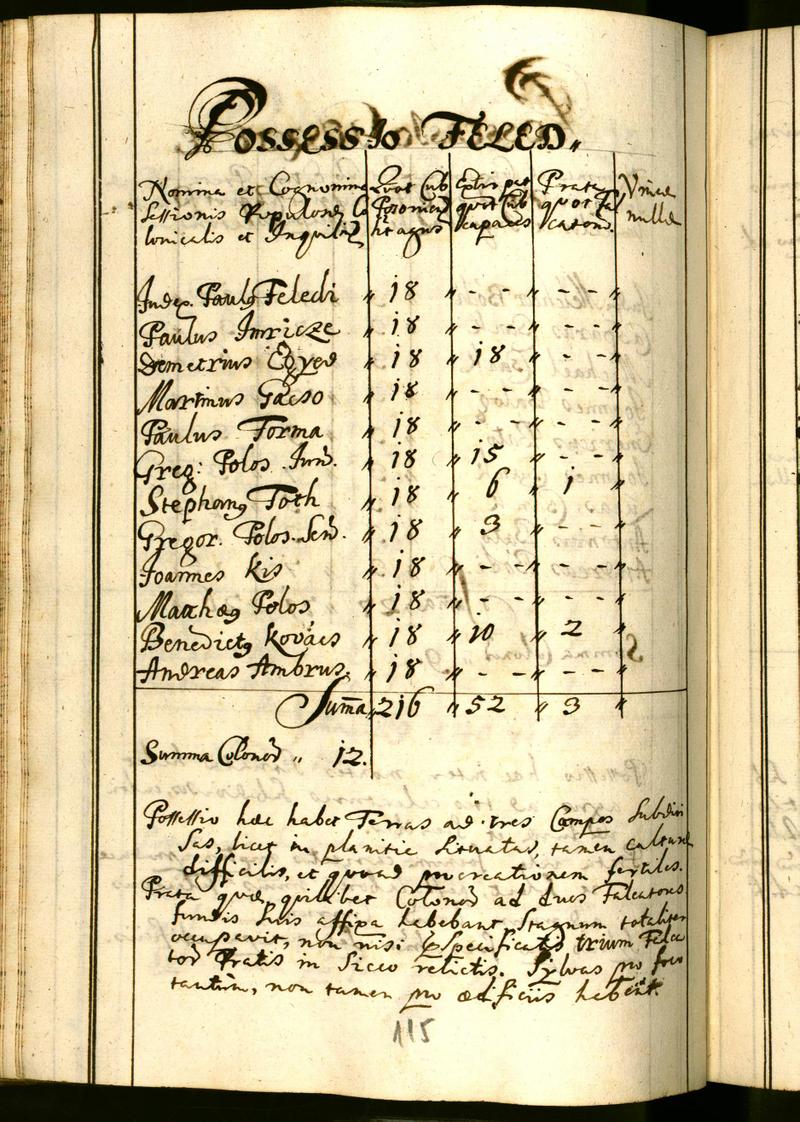 Possessio Feled„
Nomina et Cognomina Quot Cub Extirpat Prata Vineæ
Sessionis Populosæ Co Posonien quot Cub quot Fal nullæ
lonicalis et Inquilin hic agros capaces caton.
Iudex. Paulg Feledi „ 18 „ - - „ - - „
Paulus Imricze „ 18 „ - - „ - - „
Demetrius Egyed „ 18 „ 18 „ - - „
Martinus Gácso „ 18 „ - - „ - - „
Paulus Forma „ 18 „ - - „ - - „
Greg: Polos Jun. „ 18 „ 15 „ - - „
Stephang Toth „ 18 „ 6 „ 1 „
Gregor. Polos. Sen. „ 18 „ 3 „ - - „
Joannes Kis „ 18 „ - - „ - - „
Mathæg Polos „ 18 „ - - „ - - „
Benedictg Kovács „ 18 „ 10 „ 2 „
Andreas Ambrus. „ 18 „ - - „ - - „
Sum̄a „ 216 „ 52 „ 3 „
Summa Colonor „ 12.
Possessio hæc habet Terras ad tres Campos Subdivi
sas, licet in planitie situatas, tamen culturæ
difficilis, et quoad procreationem fertiles.
Prata quæ quilibet Colonor ad duos Falcatores
fundis suis affixa habebant Stagnum totaliter
occupavit, non nisi Specificatis trium Falca
tor Pratis in Sicco relictis. Sylvas pro foco
tantum, non tamen pro ædificiis habent.
115